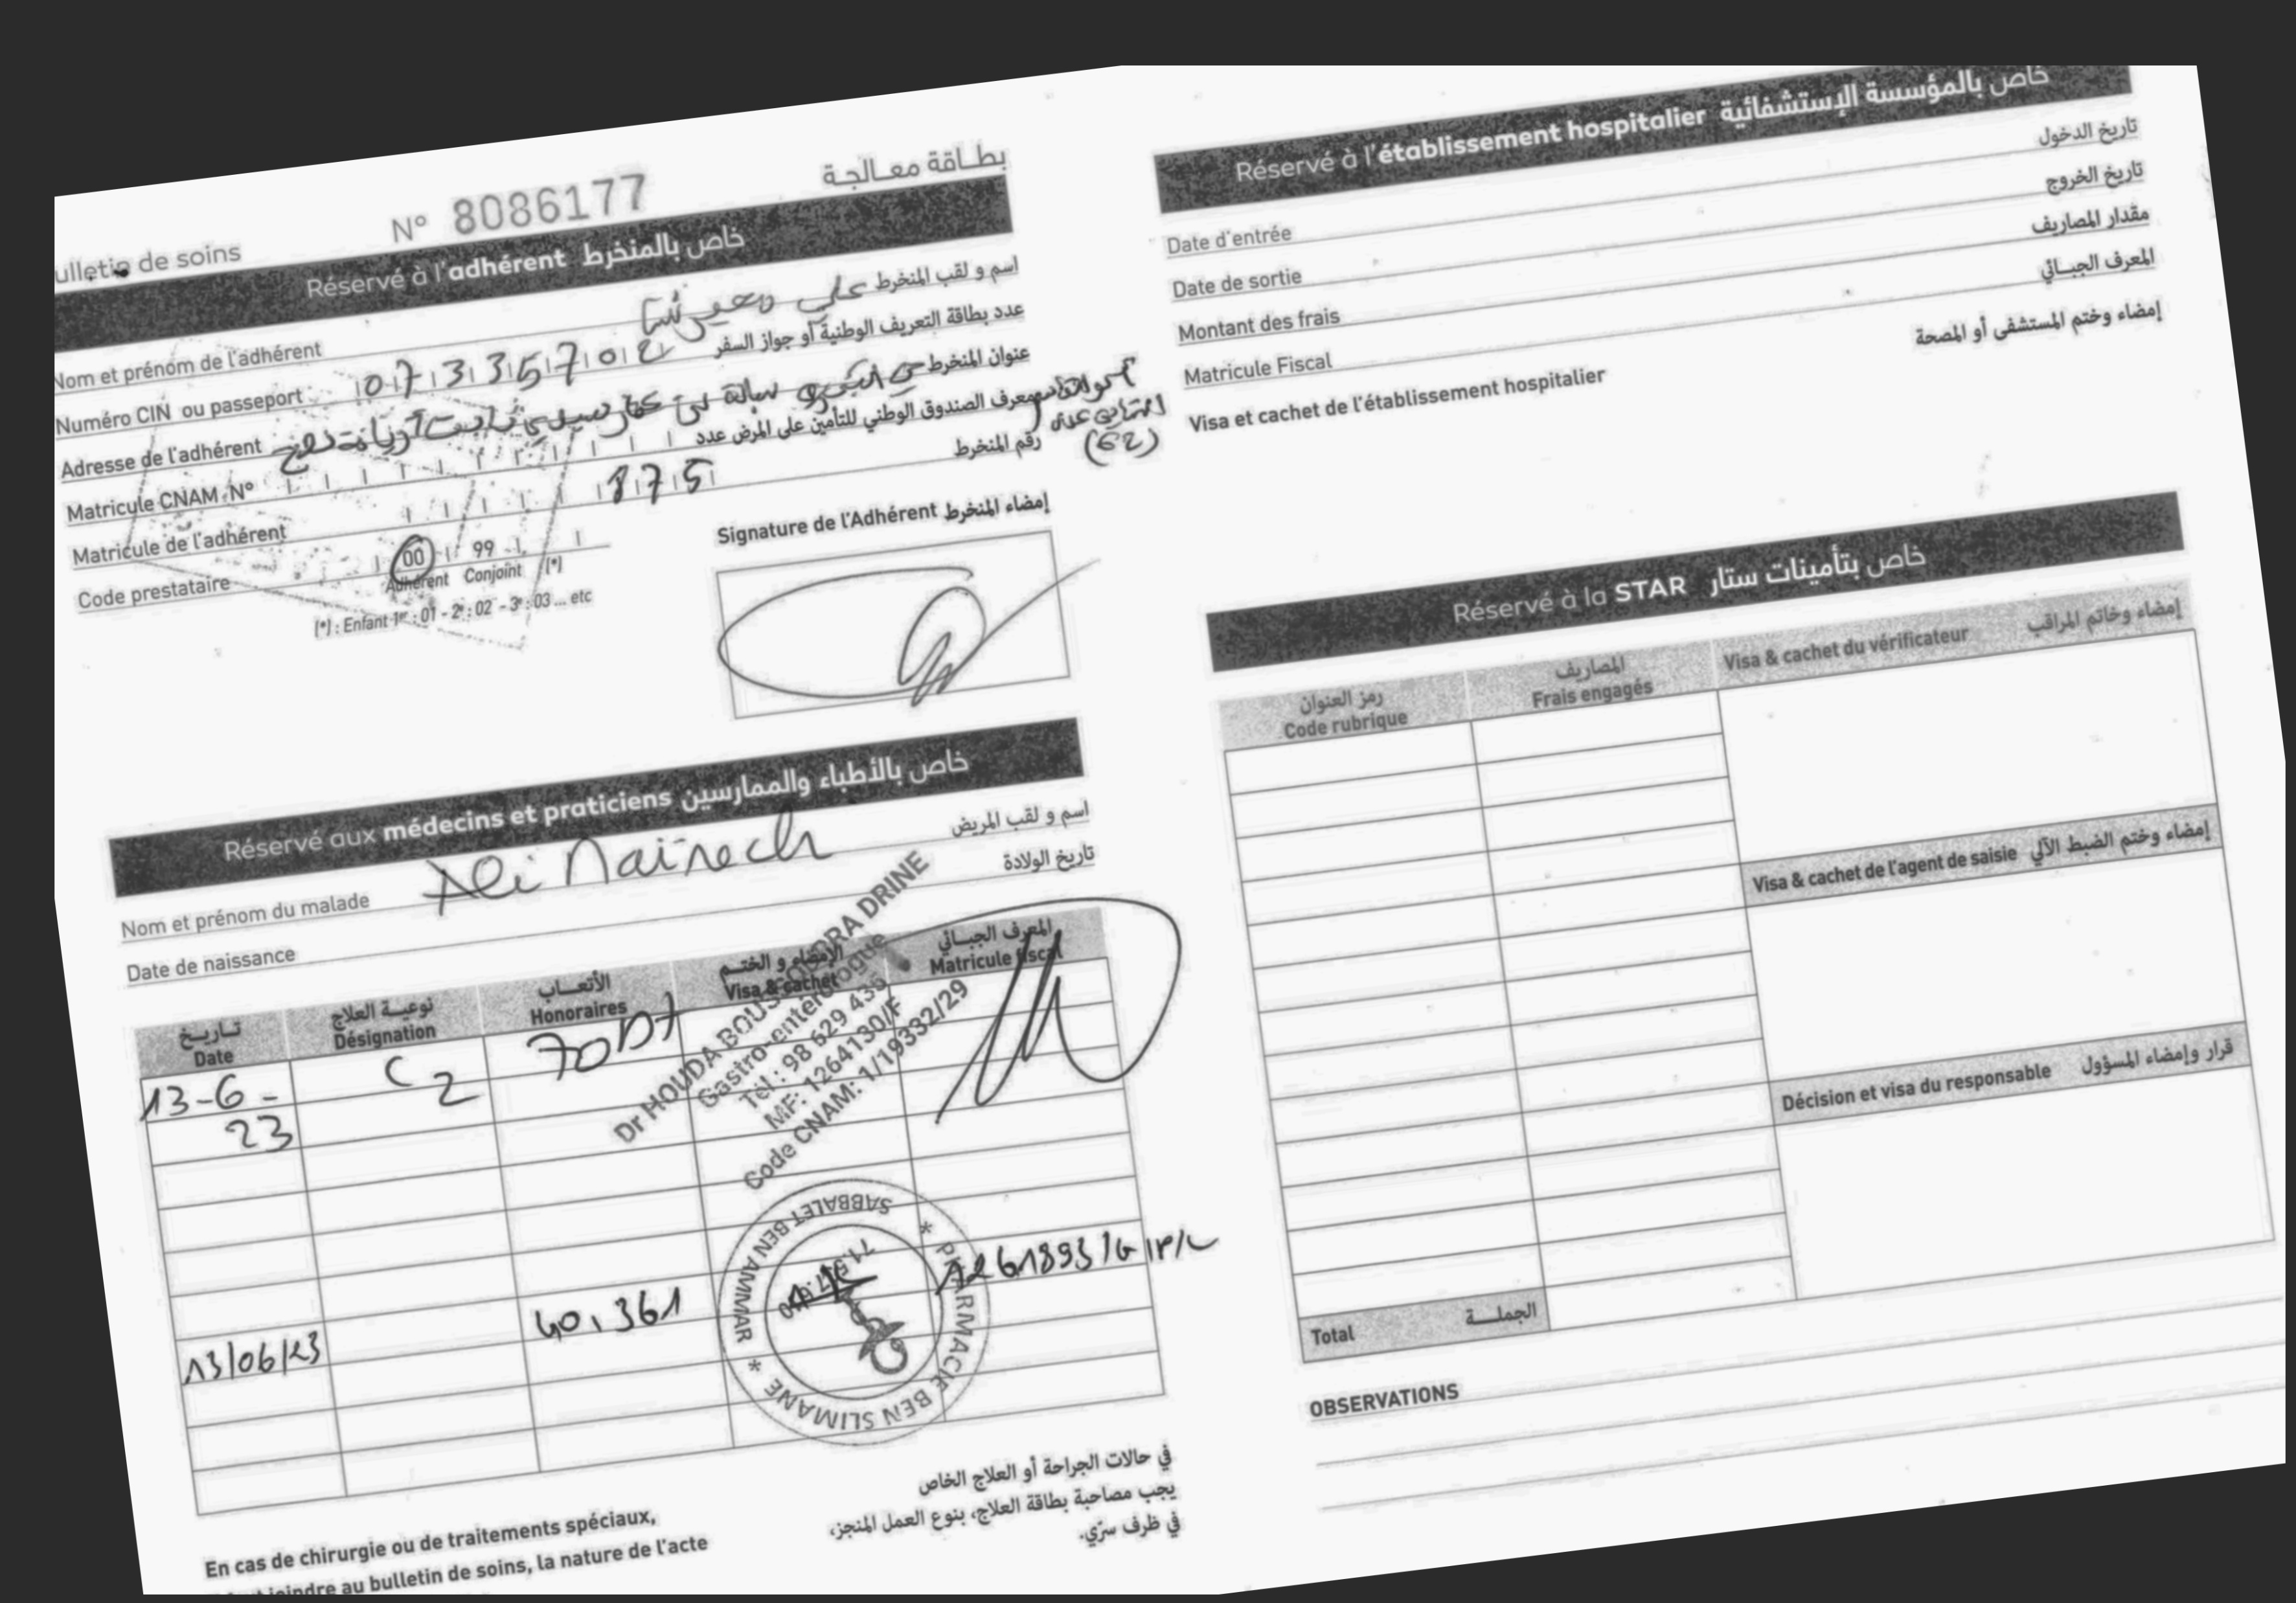 ulletin de soins N° 8086177 بطاقة معالجة
Réservé à l'adhérent خاص بالمنخرط
Nom et prénom de l'adhérent علي معيرش اسم و لقب المنخرط
Numéro CIN ou passeport 07335702 عدد بطاقة التعريف الوطنية أو جواز السفر
Adresse de l'adhérent عنوان المنخرط
Matricule CNAM N° معرف الصندوق الوطني للتأمين على المرض عدد
(62)
Matricule de l'adhérent 875 رقم المنخرط
Code prestataire 00 99
Adhérent Conjoint (*)
(*) : Enfant 1er : 01 - 2e : 02 - 3e : 03 ... etc
Signature de l'Adhérent إمضاء المنخرط
Réservé aux médecins et praticiens خاص بالأطباء والممارسين
Nom et prénom du malade Ali Mairech اسم و لقب المريض
Date de naissance تاريخ الولادة
تاريخ نوعية العلاج الأتعاب الإمضاء و الختم المعرف الجبائي
Date Désignation Honoraires Visa & cachet Matricule fiscal
13-6- C2 70DT
23
Gastro-enterologue
Tél : 98 629 436
MF: 1264130/F
Code CNAM: 1/19332/29
13/06/23 40,361
PHARMACIE BEN SLIMANE * SABBALET BEN AMMAR *
En cas de chirurgie ou de traitements spéciaux,
joindre au bulletin de soins, la nature de l'acte
في حالات الجراحة أو العلاج الخاص
يجب مصاحبة بطاقة العلاج، بنوع العمل المنجز،
في ظرف سرّي.
Réservé à l'établissement hospitalier خاص بالمؤسسة الإستشفائية
Date d'entrée تاريخ الدخول
Date de sortie تاريخ الخروج
Montant des frais مقدار المصاريف
Matricule Fiscal المعرف الجبائي
Visa et cachet de l'établissement hospitalier إمضاء وختم المستشفى أو المصحة
Réservé à la STAR خاص بتأمينات ستار
رمز العنوان المصاريف
Code rubrique Frais engagés Visa & cachet du vérificateur إمضاء وخاتم المراقب
Visa & cachet de l'agent de saisie إمضاء وختم الضبط الآلي
Décision et visa du responsable قرار وإمضاء المسؤول
Total الجملة
OBSERVATIONS